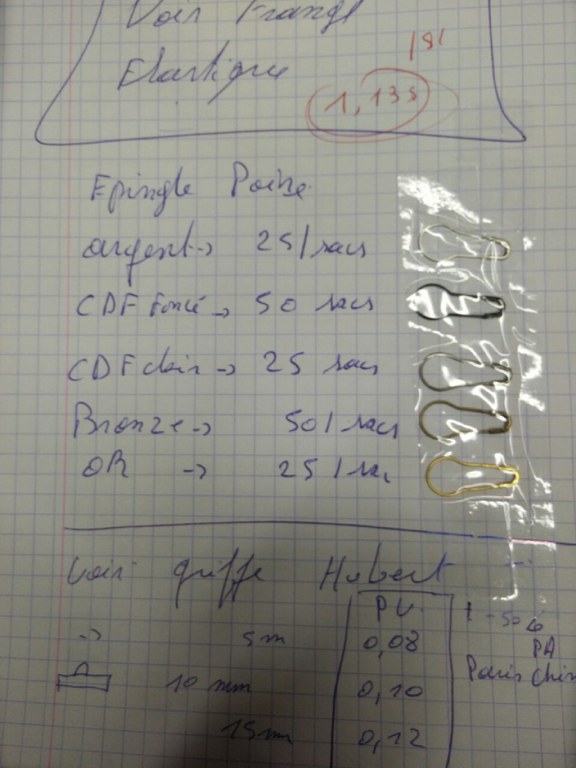 Voir Frange
Elastique
181
1,135
Epingle Poire
argent → 25 / sacs
CDF Foncé → 50 sacs
CDF clair → 25 sacs
Bronze → 50 / sacs
OR → 25 / sac
Voir griffe Hubert
PV
→ 5m 0,08
PA
10 mm 0,10
Paris
15m 0,12